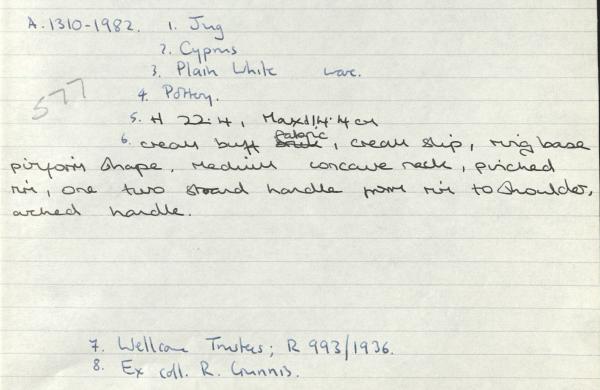 A.1310-1982. 1. Jug
2. Cyprus
3. Plain White Ware.
577
4. Pottery.
5. H 22.4, Max d 14.4 cm
6. cream buff fabric, cream slip, ring base
piriform shape, medium concave neck, pinched
rim, one two strand handle from rim to shoulder,
arched handle.
7. Wellcome Trustees; R 993/1936.
8. Ex coll. R. Gunnis.